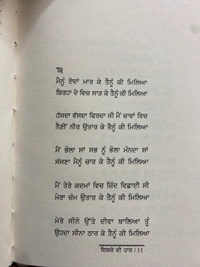 ੧੨
ਮੈਨੂੰ ਏਦਾਂ ਮਾਰ ਕੇ ਤੈਨੂੰ ਕੀ ਮਿਲਿਆ
ਬਿਰਹਾ ਦੇ ਵਿਚ ਸਾੜ ਕੇ ਤੈਨੂੰ ਕੀ ਮਿਲਿਆ
ਹੱਸਦਾ ਵੱਸਦਾ ਫਿਰਦਾ ਸੀ ਮੈਂ ਚਾਵਾਂ ਵਿਚ
ਨੈਣੀਂ ਨੀਰ ਉਤਾਰ ਕੇ ਤੈਨੂੰ ਕੀ ਮਿਲਿਆ
ਮੈਂ ਭੋਲਾ ਸਾਂ ਸਭ ਨੂੰ ਭੋਲਾ ਮੰਨਦਾ ਸਾਂ
ਸੱਜਣਾ ਮੈਨੂੰ ਚਾਰ ਕੇ ਤੈਨੂੰ ਕੀ ਮਿਲਿਆ
ਮੈਂ ਤੇਰੇ ਕਦਮਾਂ ਵਿਚ ਜਿੰਦ ਵਿਛਾਈ ਸੀ
ਮੇਰਾ ਚੰਮ ਉਤਾਰ ਕੇ ਤੈਨੂੰ ਕੀ ਮਿਲਿਆ
ਮੇਰੇ ਸੀਨੇ ਉੱਤੇ ਦੀਵਾ ਬਾਲਿਆ ਤੂੰ
ਉਹਦਾ ਸੀਨਾ ਠਾਰ ਕੇ ਤੈਨੂੰ ਕੀ ਮਿਲਿਆ
ਇਸ਼ਕੇ ਦੀ ਹਾਰ / 13